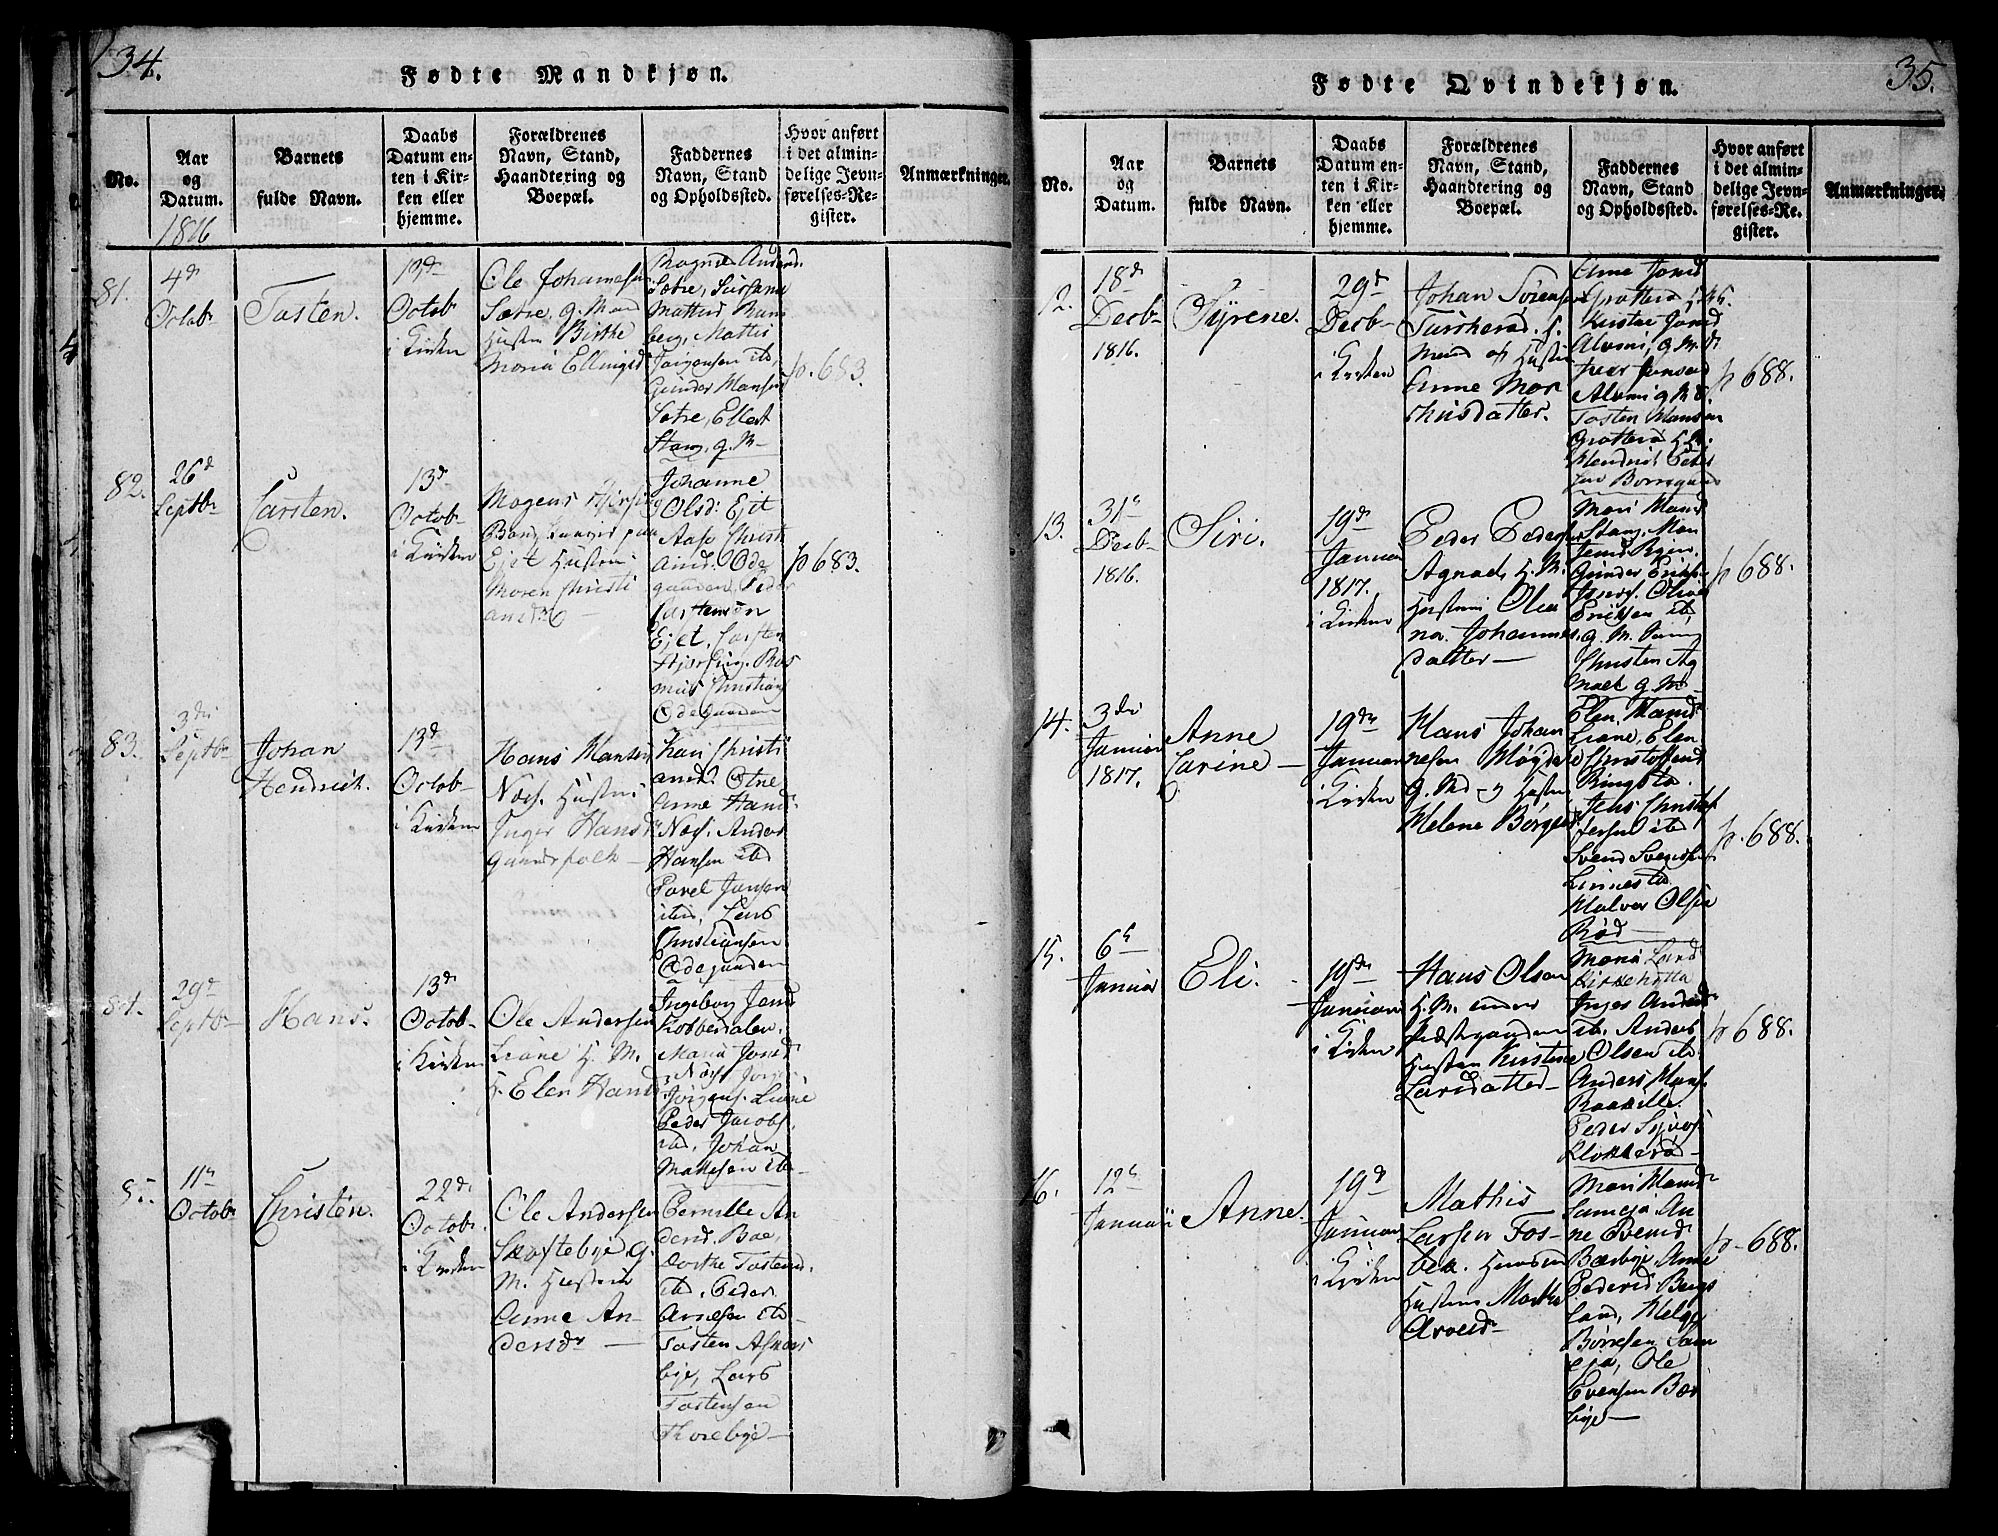 34.
Fødte Mandkjøn.
No.
Aar
og
Datum.
1816
Barnets
fulde Navn.
Daabs
Datum en-
ten i Kir-
ken eller
hjemme.
Forældrenes
Navn, Stand,
Haandtering og
Boepæl.
Faddernes
Navn, Stand
og Opholdssted.
Hvor anført
i det almin-
delige Jevn-
førelses-Re-
gister.
Anmærkninger.
81.
4d
Octobr
Tosten.
13d
Octob
i Kirken
Ole Johannesen
Sætre, g. Mand
Hustru Birthe
Maria Ellingsd
Sætre, Sussane
Mattis
Gunder Hansen
Sætre, Ellert
Stang, g. M-
p. 683.
82.
26d
Septbr
Carsten.
13d
Octob-
i Kirken
Mogens
Ejet Hustru
Maren Christi
ansdr
Johanne
Olsd: Ejet
Aase Christi
ansd: Øde
gaarden, Peder
Carstensen
Ejet, Carsten
Ras
mus Christians
Ødegaarden
p 683.
83.
3die
Septbr
Johan
Hendrich.
13d
Octob-
i Kirken
Hans Hansen
Næs. Hustru
Inger Hansd
gaardsfolk-
Kari Christi
ansd. Østne
Anne Hansd
Næs. Anders
Hansen ibd
Povel Jansen
ibd, Lars
Christiansen
Ødegaarden
84.
29d
Septb-
Hans.
13d
Octob-
i Kirken
Ole Andersen
Liane H. M.
H. Elen Hansd
Ingeborg Jensd
Kobberdalen.
Maria Jonsd
Næs, Jørgen
Jørgens. Liane
Peder Jacobs.
ibd, Johan
Mathesen ib-
85.
11te
Octobr
Christen.
22d
Octob.
i Kirken
Ole Andersen
Skoftebye g.
M. Hustrue
Anne An-
dersdr
Pernille An
dersd. Boe,
Dorthe Tostensd.
ibd, Peder
Arnesen ibd
Tosten Asmars
bye, Lars
Tostensen
Thorebye-
35.
Fødte Qvindekjøn.
No.
Aar
og
Datum.
Barnets
fulde Navn.
Daabs
Datum en-
ten i Kir-
ken eller
hjemme.
Forældrenes
Navn, Stand,
Haandtering og
Boepæl.
Faddernes
Navn, Stand
og Opholdssted.
Hvor anført
i det almin-
delige Jevn-
førelses-Re-
gister.
Anmærkninger.
12.
18d
Decb-
1816.
Syrene.
29d
Decb-
i Kirken
Johan Sørensen
Mand og Hustru
Anne Mor
thisdatter.
Anne Jonsd
Kirstie Jonsd
Alvim, g. M.
Iver Jensen
Alvim g M.
Tosten Hansen
Hendrich Peder
sen Borregaard
p 688.
13.
31te
Decb-
1816.
Siri.
19d
Januar
1817.
i Kirken
Peder Pedersen
Agnalt, H. M.
Hustrue Olea
na. Johannes
datter-
Mari Hansd
Stang, Mari
Gunder Eriks-
Oliver
Eriksen ib
g. M.
Christen Ag
nalt g M-
p 688.
14.
3die
Januar
1817.
Anne
Carine-
19de
Januar
i Kirken
Hans Johan
nesen
g. Md- og Hustru
Helene Børges
Elen Hansd
Liane, Elen
Christoffersd
Ringstad
Jens Christof
fersen ibd
Svend Svendsen
Linnestad.
Halvor Olsen
Rød-
p. 688.
15.
6te
Januar
Eli.
19de
Januar
i Kirken
Hans Olsen
H. M. under
Præstegaarden
Hustrue Kirstene
Larsdatter-
Maria Lars
Kirkehytta
Inger Andersdr
ib. Anders
Olsen ib
Anders Hans.
Peder
Klokkerød-
p 688.
16.
12te
Januar
Anne.
19d
Januar
i Kirken
Mathis
Larsen Fos-
bek. Huusmd
Hustrue Marthe
Arvesd-
Mari Hansd
Sameja An
ne Evensd
Bærbye, Anne
Pedersd Bergs
land, Helge
Børresen Sam
eja, Ole
Evensen Bær
bye-
p- 688.